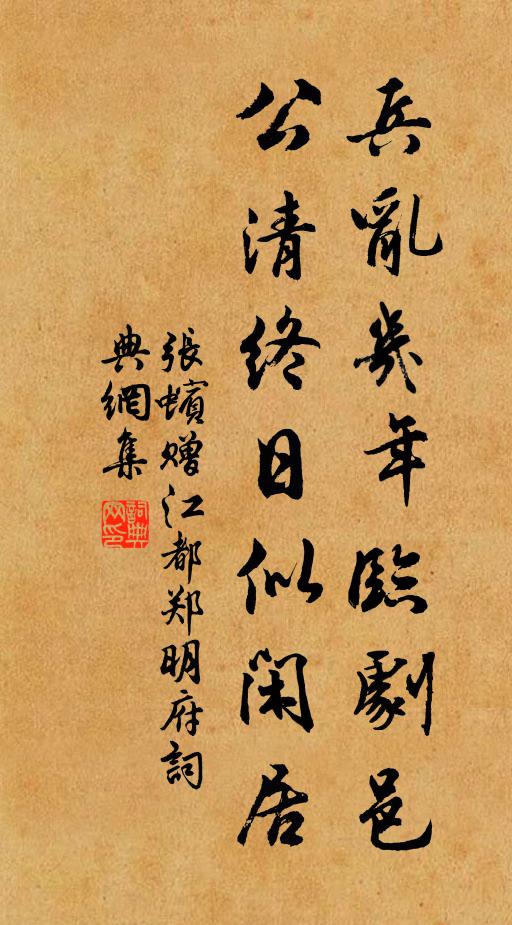 兵亂幾年臨劇邑
公清終日似閑居
張蠙赠江都郑明府詞
典網集
詞典网印